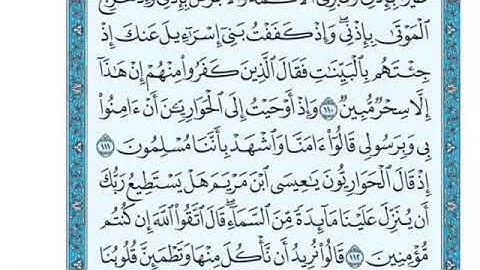 طَيْرًۢا بِإِذْنِى وَتُبْرِئُ ٱلْأَكْمَهَ وَٱلْأَبْرَصَ بِإِذْنِى وَإِذْ تُخْرِجُ
ٱلْمَوْتَىٰ بِإِذْنِى ۖ وَإِذْ كَفَفْتُ بَنِىٓ إِسْرَٰٓءِيلَ عَنكَ إِذْ
جِئْتَهُم بِٱلْبَيِّنَٰتِ فَقَالَ ٱلَّذِينَ كَفَرُوا۟ مِنْهُمْ إِنْ هَٰذَآ
إِلَّا سِحْرٌ مُّبِينٌ ١١٠ وَإِذْ أَوْحَيْتُ إِلَى ٱلْحَوَارِيِّـۧنَ أَنْ ءَامِنُوا۟
بِى وَبِرَسُولِى قَالُوٓا۟ ءَامَنَّا وَٱشْهَدْ بِأَنَّنَا مُسْلِمُونَ ١١١
إِذْ قَالَ ٱلْحَوَارِيُّونَ يَٰعِيسَى ٱبْنَ مَرْيَمَ هَلْ يَسْتَطِيعُ رَبُّكَ
أَن يُنَزِّلَ عَلَيْنَا مَآئِدَةً مِّنَ ٱلسَّمَآءِ ۖ قَالَ ٱتَّقُوا۟ ٱللَّهَ إِن كُنتُم
مُّؤْمِنِينَ ١١٢ قَالُوا۟ نُرِيدُ أَن نَّأْكُلَ مِنْهَا وَتَطْمَئِنَّ قُلُوبُنَا